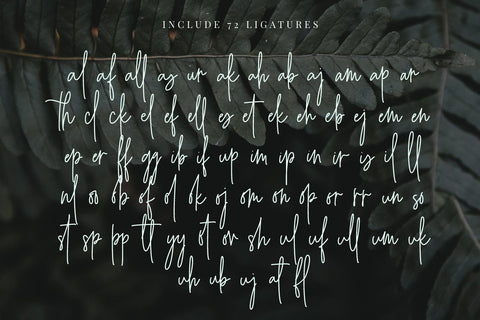 INCLUDE 72 LIGATURES
al af all as ur ak ah ab aj am ap ar
Th cl ck el ef ell es et ek eh eb ej em en
ep er ff gg ib if up im ip in ir is il ll
nl oo ob of ol ok oj om on op or rr un so
st sp pp tt yy ot ov sh ul uf ull um uk
uh ub uj at fl